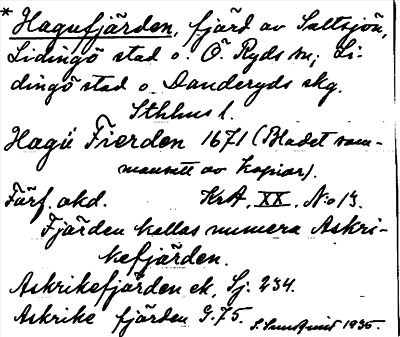 * Hagufjärden, fjärd av Saltsjön,
Lidingö stad o. Ö. Ryds sn; Li-
dingö stad o. Danderyds skg.
Sthlms l.
Hagü Fierden 1671 (Bladet sam-
mansatt av kopior).
Förf. okd. KrA. XX. No 13.
Fjärden kallas numera Askri-
kefjärden.
Askrikefjärden ek. Sj. 234.
Askrike fjärden G. 75. 1935.